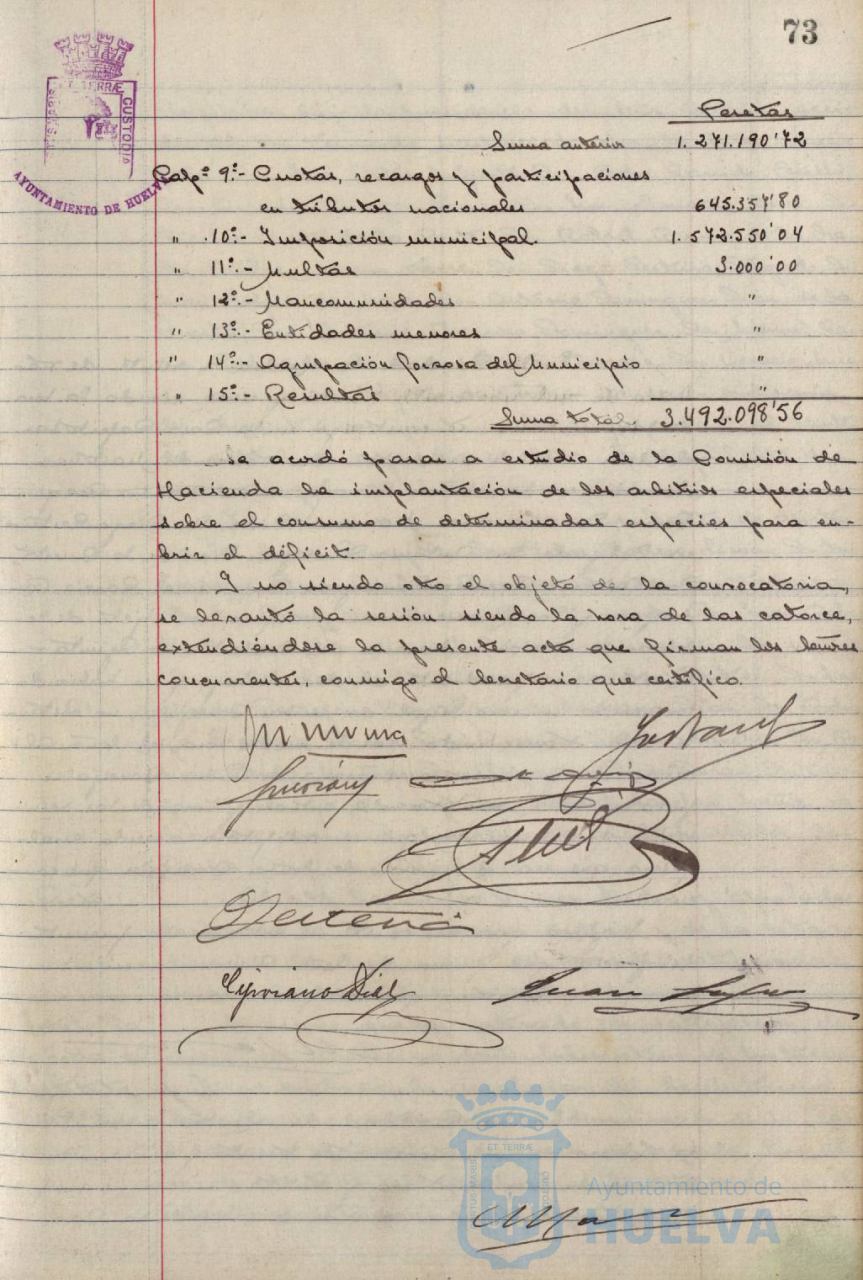 73
Pesetas
Suma anterior 1.271.190'72
Capº 9º.- Cuotas, recargos y participaciones
en tributos nacionales 645.357'80
" 10º.- Imposición municipal. 1.572.550'04
" 11º.- Multas 3.000'00
" 12º.- Mancomunidades "
" 13º.- Entidades menores "
" 14º.- Agrupación forzosa del Municipio "
" 15º.- Resultas "
Suma total. 3.492.098'56
Se acordó pasar a estudio de la Comisión de
Hacienda la implantación de los arbitrios especiales
sobre el consumo de determinadas especies para cu-
brir el déficit.
Y no siendo otro el objeto de la convocatoria,
se levantó la sesión siendo la hora de las catorce,
extendiéndose la presente acta que firman los señores
concurrentes, conmigo el Secretario que certifico.
Cipriano Díaz
Juan
ET TERRÆ
CUSTODIA
AYUNTAMIENTO DE HUELVA
ET TERRÆ
Ayuntamiento de
HUELVA